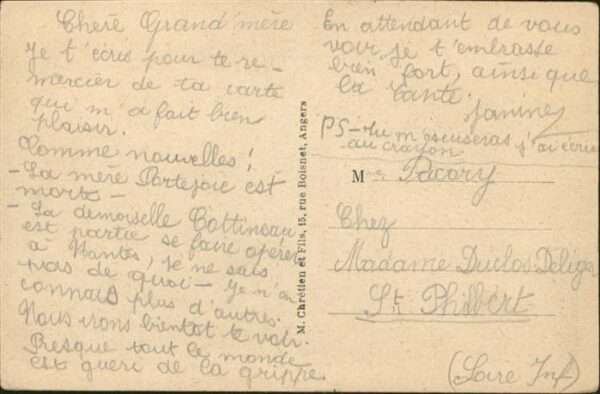 Cherè Grand'mère
Je t'écris pour te re-
mercier de ta carte
qui m'a fait bien
plaisir.
Comme nouvelles!
- La mère Portejoie est
morte -
- La demoiselle Cottineau
est partie se faire opérer
à Nantes, je ne sais
pas de quoi - Je n'en
connais plus d'autres.
Nous irons bientôt te voir.
Presque tout le monde
est guéri de la grippe.
En attendant de vous
voir je t'embrasse
bien fort, ainsi que
la Tante.
Janine
PS - tu m'escuseras j'ai écrit
au crayon
M. Chrétien et Fils, 15, rue Boisnet, Angers
Me Pacory
Chez
Madame Duclos
St Philbert
(Loire Inf)